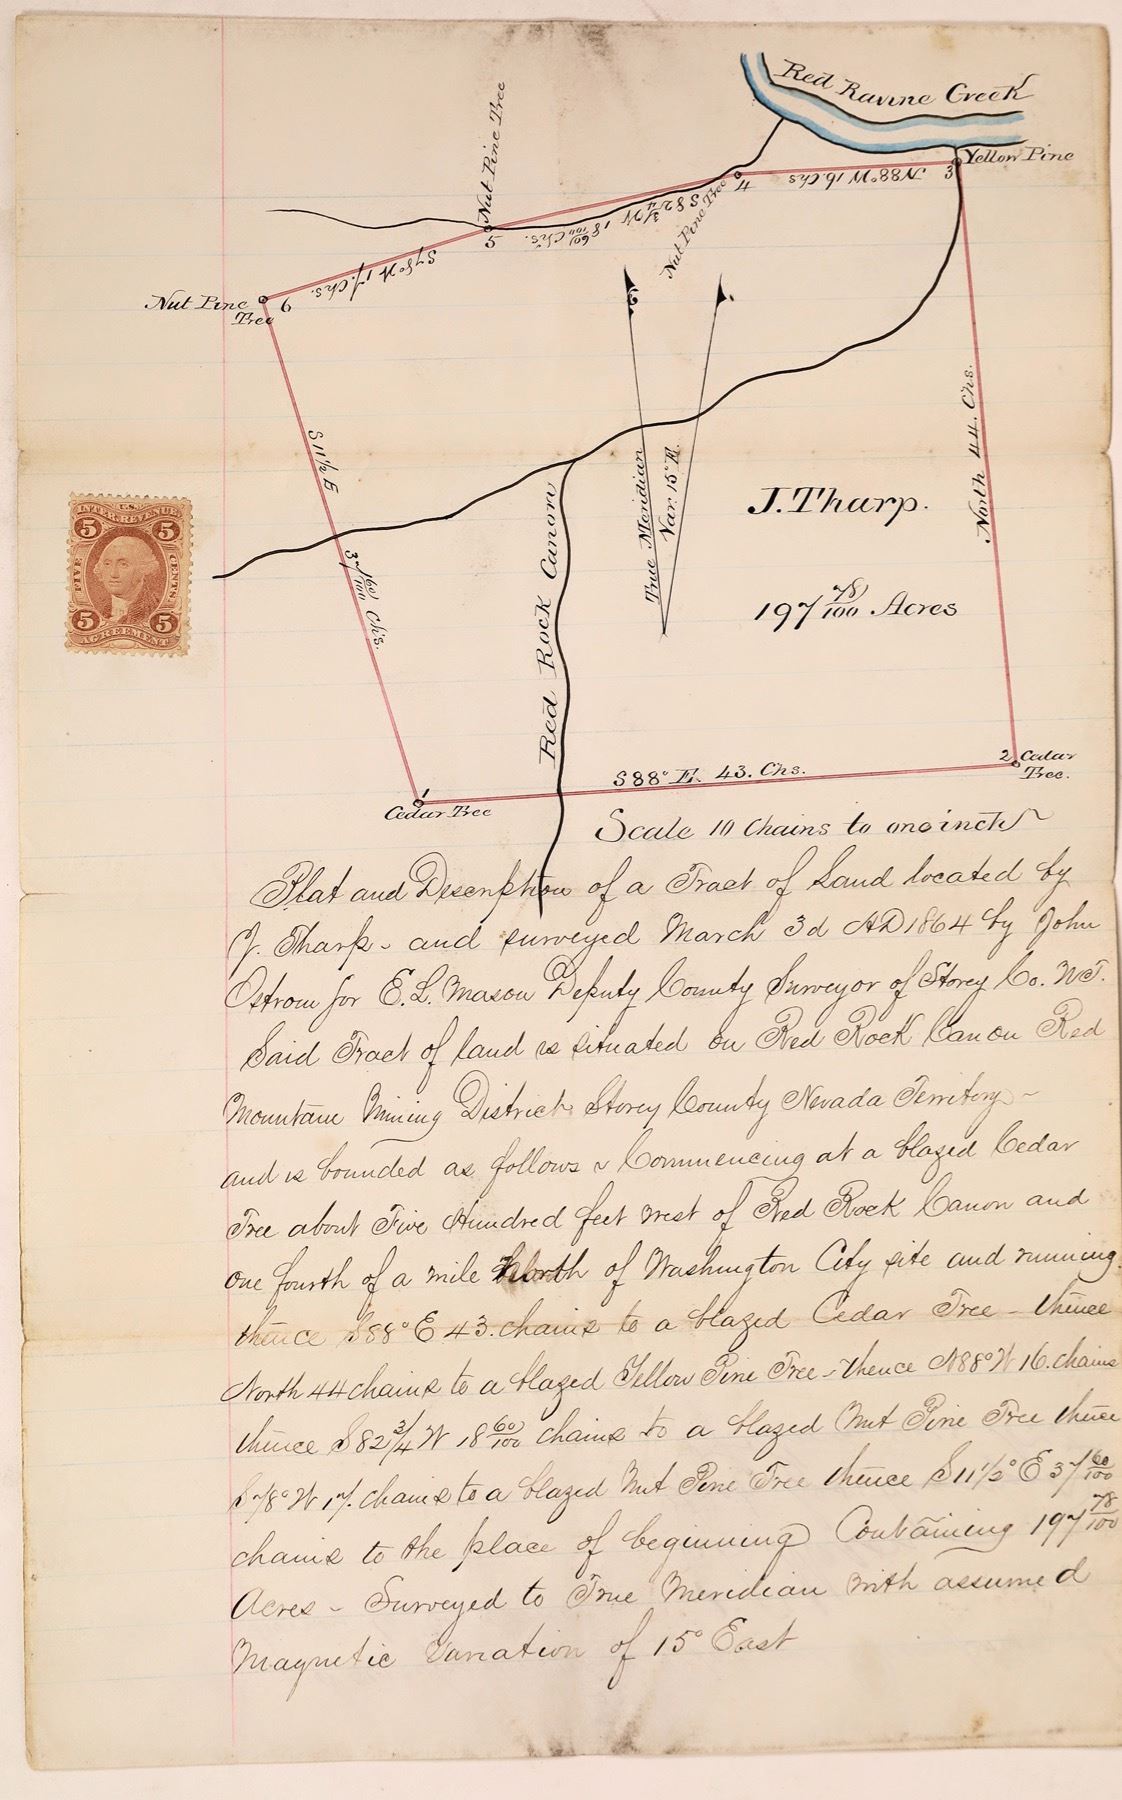 Red Ravine Creek
Nut Pine Tree
Yellow Pine
3
N88°W 16. Chs
4
Nut Pine Tree
S 82 3/4 W 18 60/100 Chs.
5
S78°W 17. Chs.
Nut Pine
Tree
6
S 11 1/2 E
37 60/100 Chs.
True Meridian
Var. 15°E.
North 44. Chs.
J. Tharp.
197 78/100 Acres
Red Rock Canon
U.S.
INTER. REVENUE
5 5
FIVE CENTS.
5 5
AGREEMENT
1
Cedar Tree
S 88° E. 43. Chs.
2 Cedar
Tree.
Scale 10 Chains to one inch
Plat and Description of a Tract of Land located by
J. Tharp - and surveyed March 3d AD 1864 by John
Ostrom for E. L. Mason Deputy County Surveyor of Storey Co. N.T.
Said Tract of land is situated on Red Rock Canon Red
Mountain Mining District Storey County Nevada Territory -
and is bounded as follows ~ Commencing at a blazed Cedar
Tree about Five Hundred feet west of Red Rock Canon and
one fourth of a mile North of Washington City site and running
thence S88°E 43. chains to a blazed Cedar Tree - thence
North 44 chains to a blazed Yellow Pine Tree - thence N88°W 16. chains
thence S82 3/4 W 18 60/100 chains to a blazed Nut Pine Tree thence
S78°W 17. chains to a blazed Nut Pine Tree thence S11 1/2° E 37 60/100
chains to the place of beginning Containing 197 78/100
Acres - Surveyed to True Meridian with assumed
Magnetic Variation of 15° East